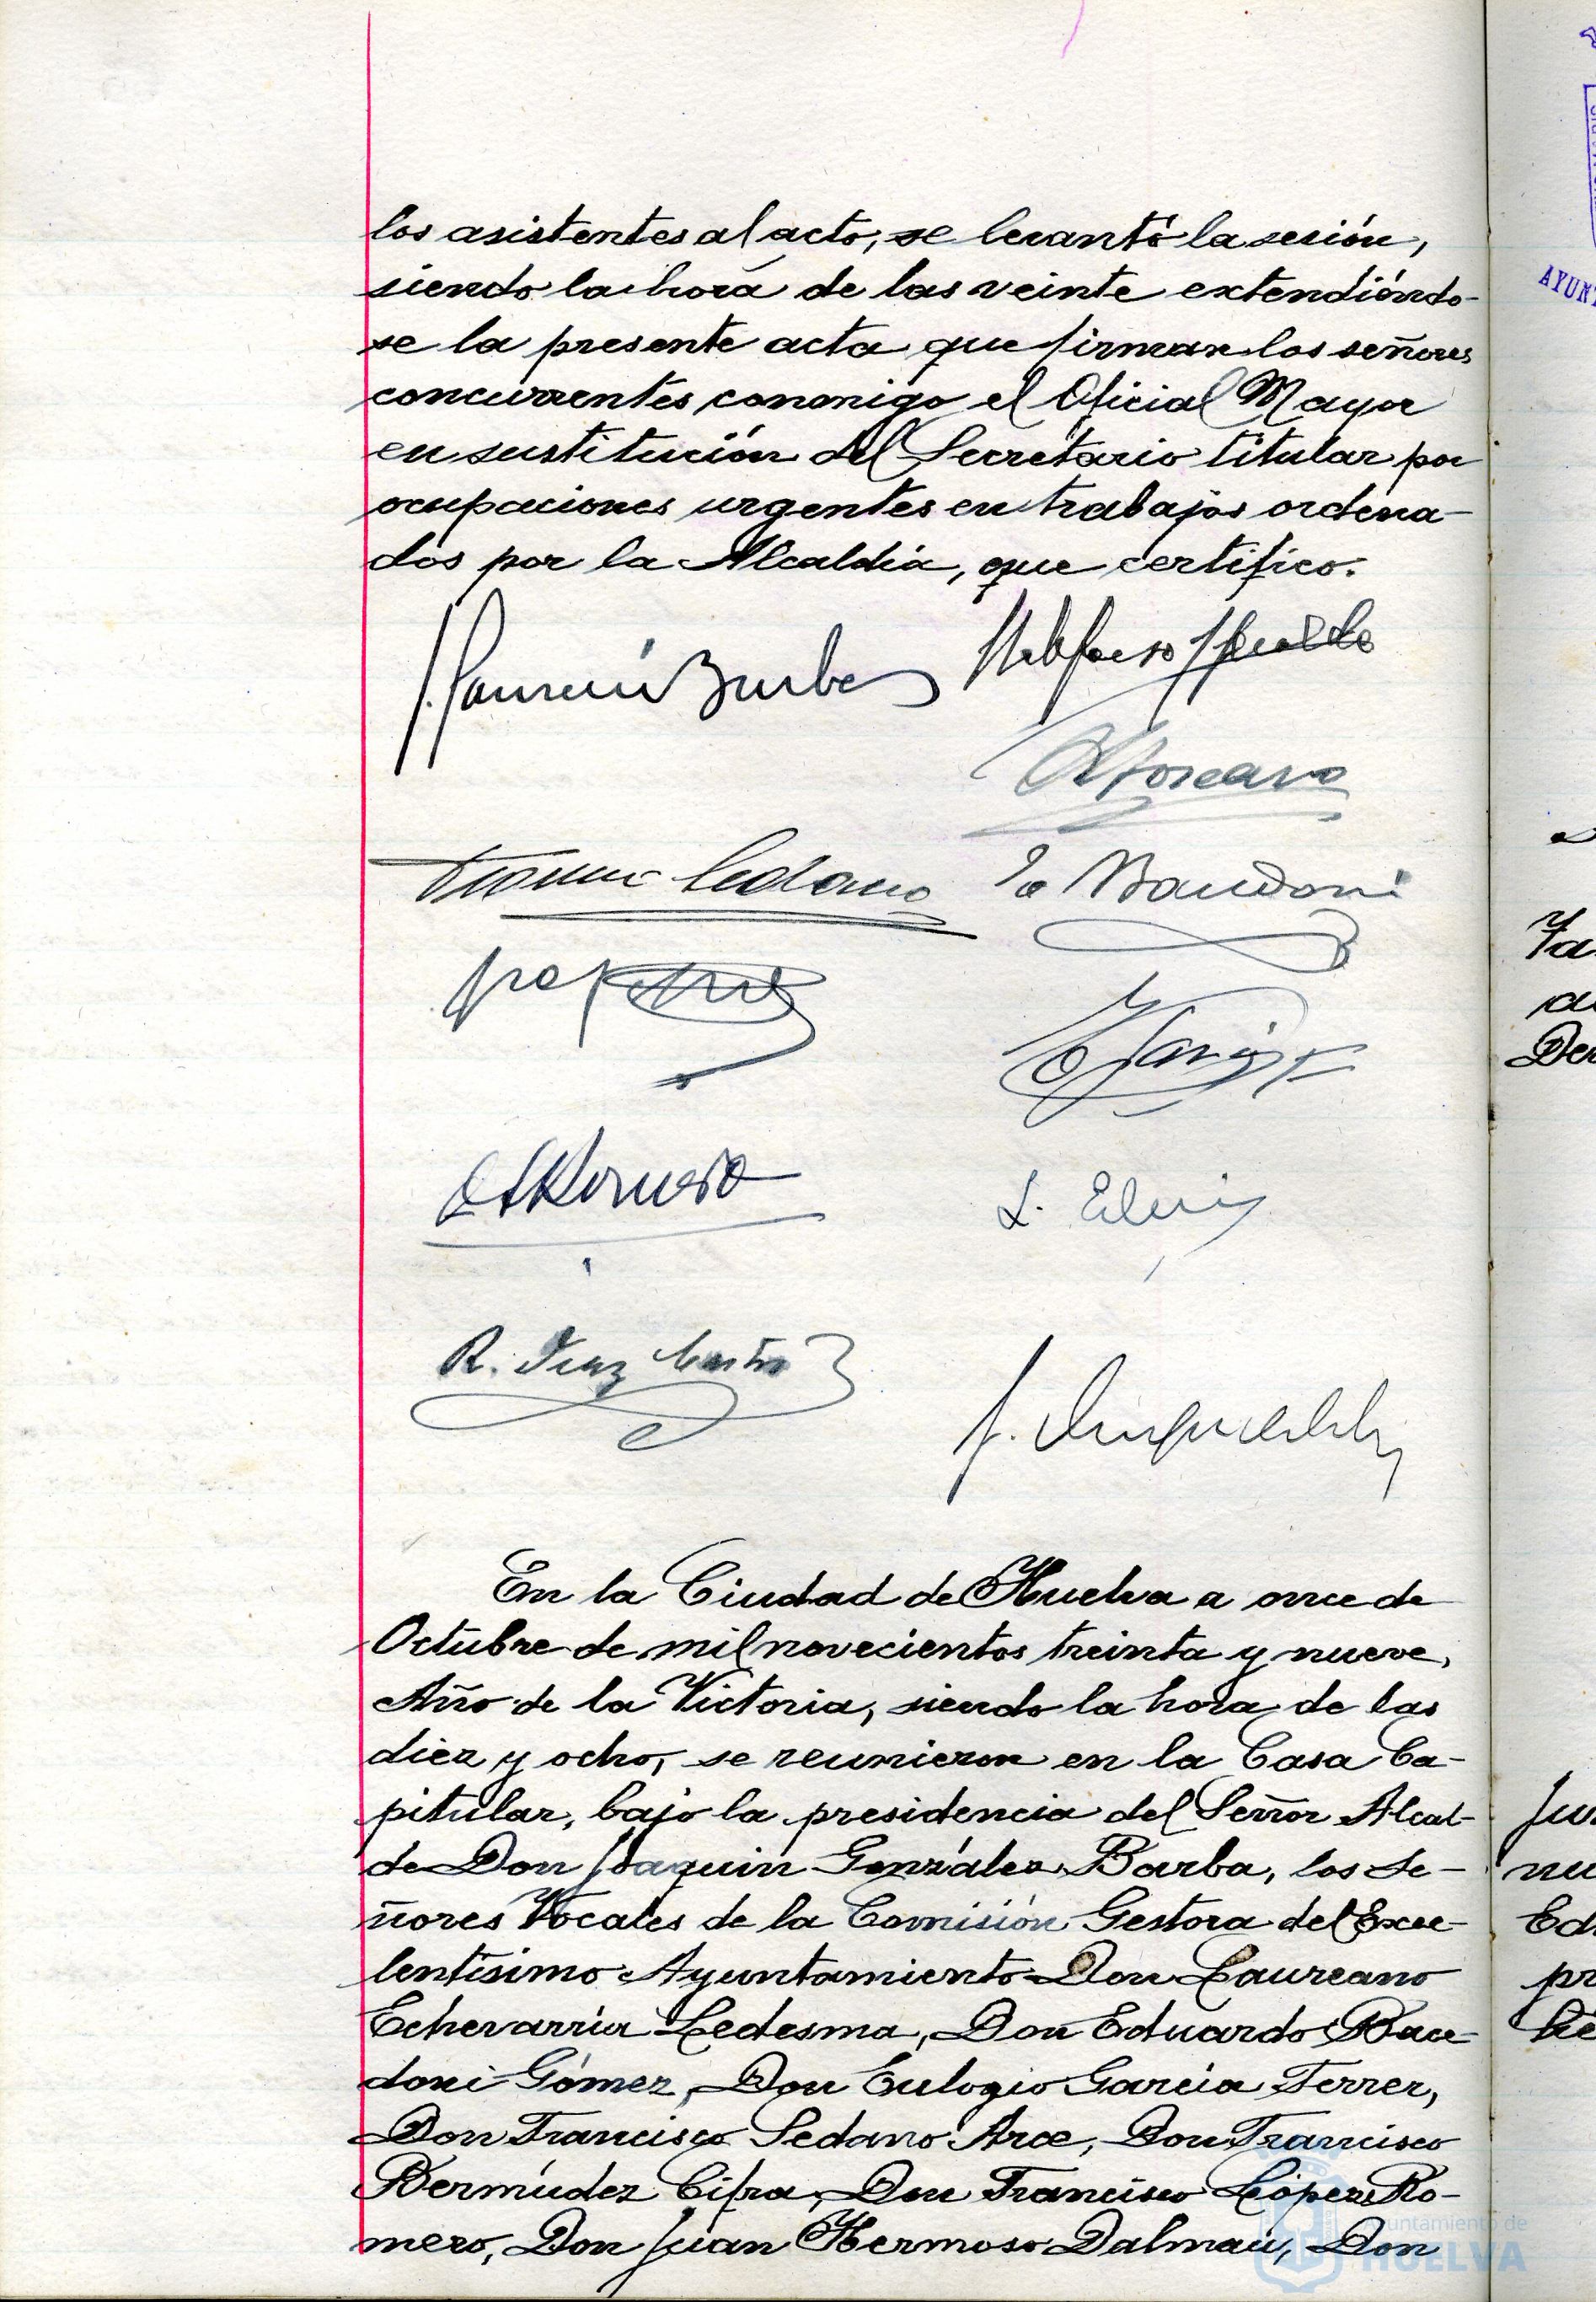 los asistentes al acto, se levantó la sesión,
siendo la hora de las veinte extendiéndo-
se la presente acta que firman los señores
concurrentes conmigo el Oficial Mayor
en sustitución del Secretario titular por
ocupaciones urgentes en trabajos ordena-
dos por la Alcaldía, que certifico.
R. Diaz
En la Ciudad de Huelva a once de
Octubre de mil novecientos treinta y nueve,
Año de la Victoria, siendo la hora de las
diez y ocho, se reunieron en la Casa Ca-
pitular, bajo la presidencia del Señor Alcal-
de Don Joaquín González Barba, los Se-
ñores Vocales de la Comisión Gestora del Exce-
lentísimo Ayuntamiento Don Laureano
Echevarría Ledesma, Don Eduardo Bace-
doni Gómez, Don Eulogio García Ferrer,
Don Francisco Sedano Arce, Don Francisco
Bermúdez Cifra, Don Francisco López Ro-
mero, Don Juan Hermoso Dalmau, Don
Ayuntamiento de
HUELVA